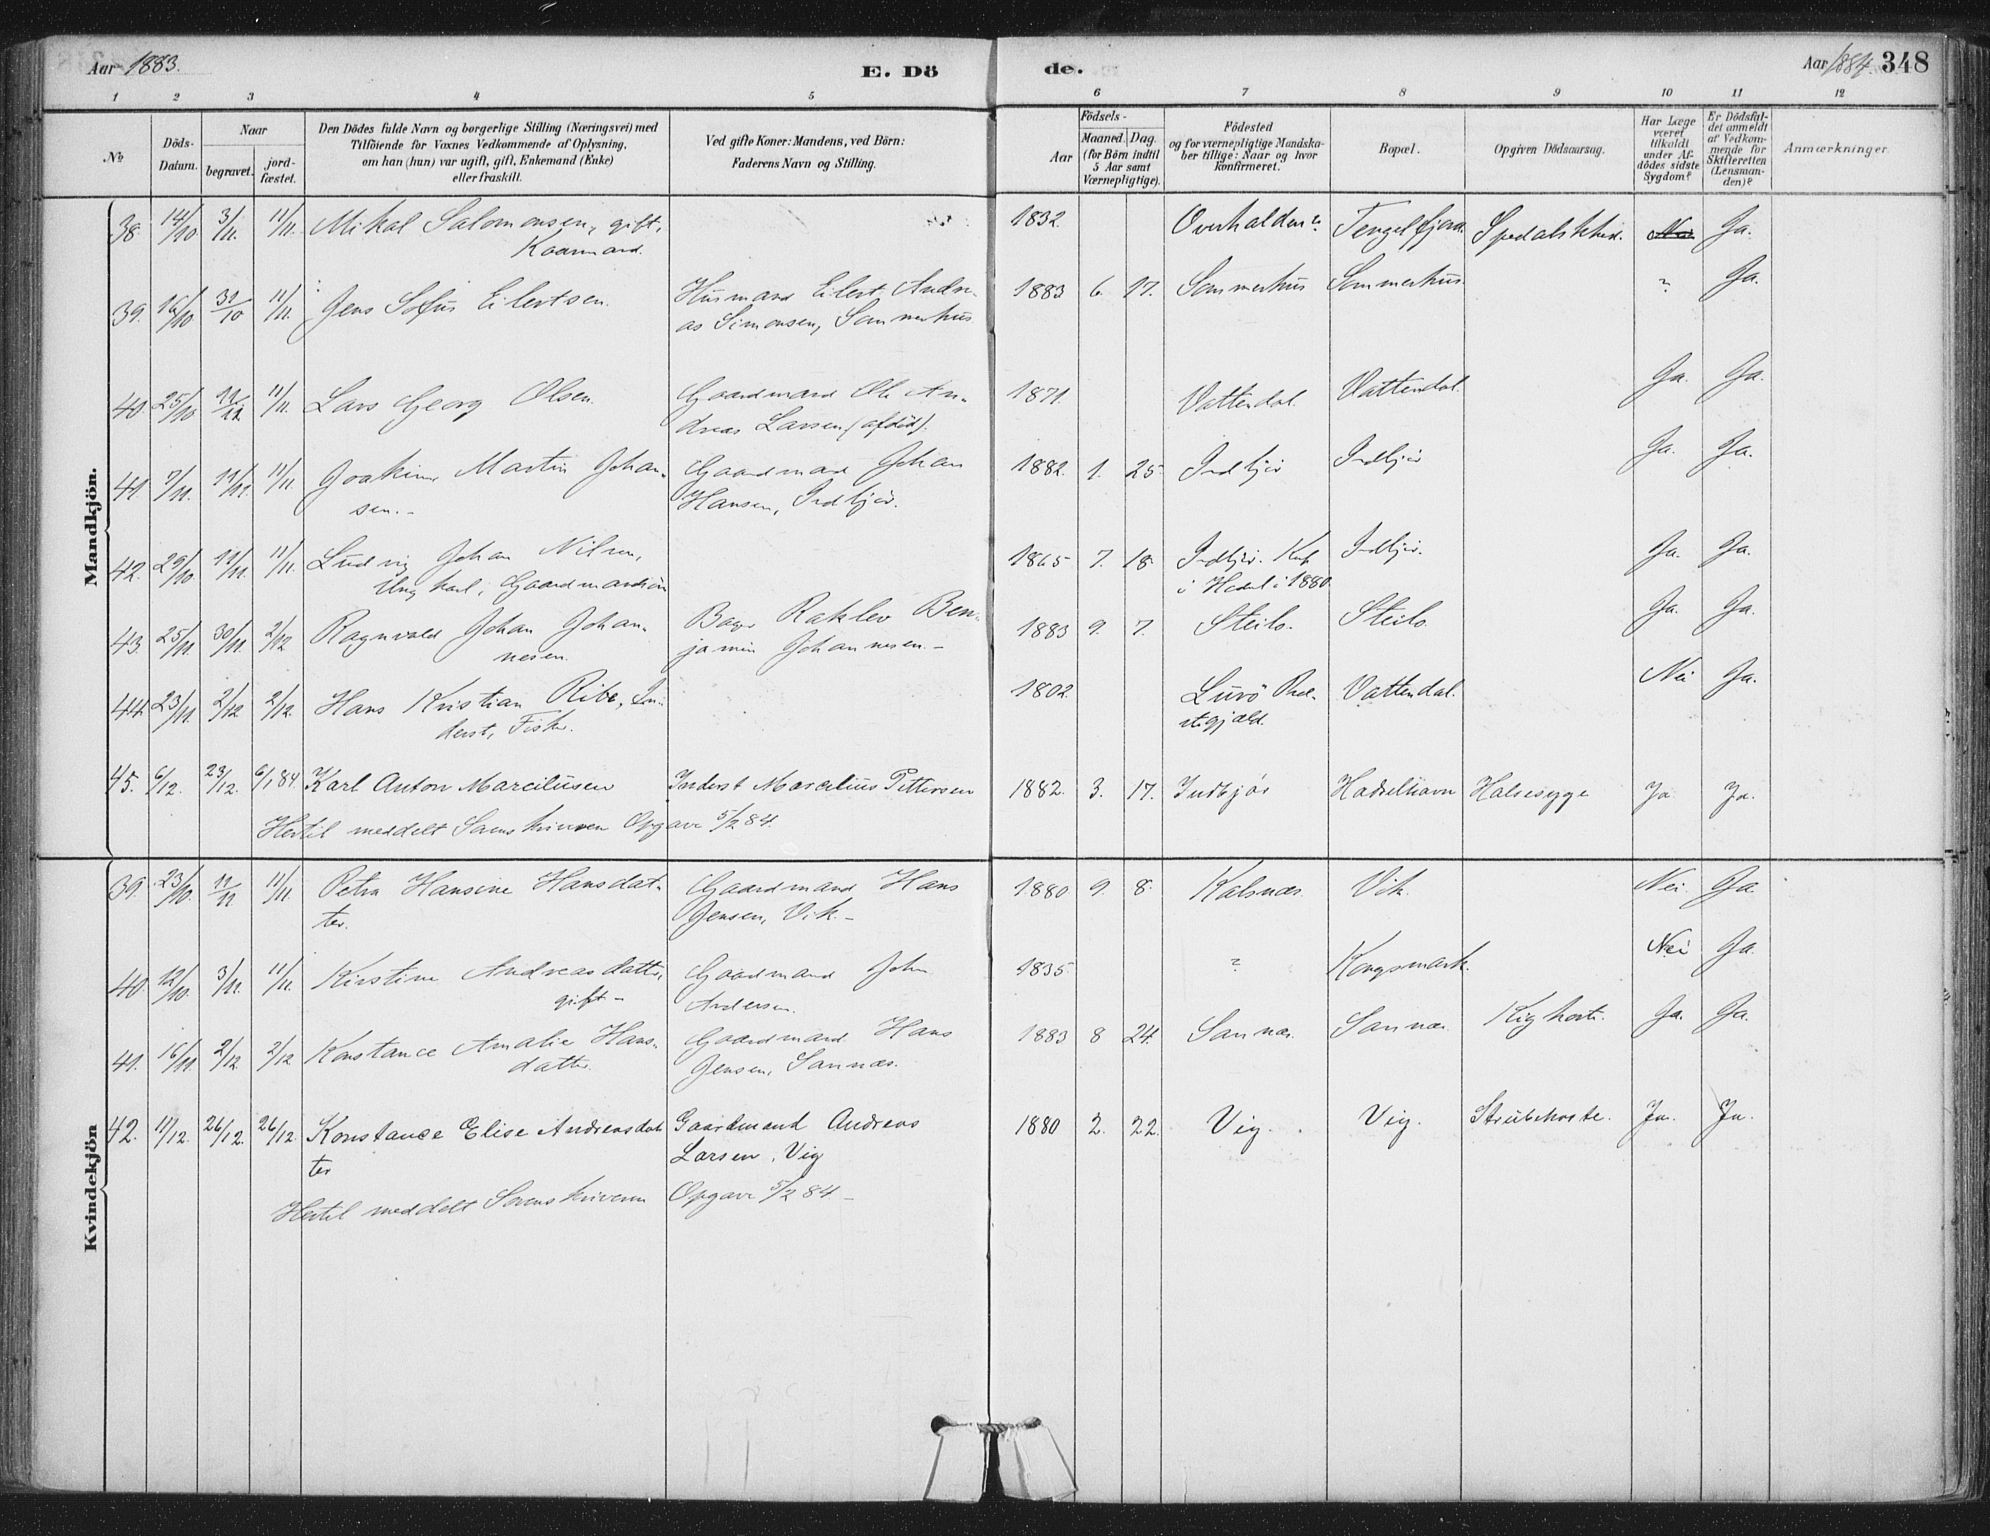 Aar 1883. E. Dö de. Aar 1884. 348
1 2 3 4 5 6 7 8 9 10 11 12
№
Döds-
Datum.
Naar
begravet.
jord-
fæstet.
Den Dödes fulde Navn og borgerlige Stilling (Næringsvei) med
Tilföiende for Voxnes Vedkommende af Oplysning,
om han (hun) var ugift, gift, Enkemand (Enke)
eller fraskilt.
Ved gifte Koner: Mandens, ved Börn:
Faderens Navn og Stilling.
Födsels-
Aar
Maaned. Dag.
(for Börn indtil
5 Aar samt
Værnepligtige).
Födested
og for værnepligtige Mandska-
ber tillige: Naar og hvor
konfirmeret.
Bopæl.
Opgiven Dödsaarsag.
Har Læge
været
tilkaldt
under Af-
dödes sidste
Sygdom?
Er Dödsfal-
det anmeldt
af Vedkom-
mende for
Skifteretten
(Lensman-
den)?
Anmærkninger.
Mandkjön.
38 14/10. 3/11. 11/11. Mikal Salomonsen, gift, 1832. Overhalden? Tengelfjord. Spedalskhed. Nei Ja.
Kaarmand.
39. 16/10 31/10 11/11. Jens Sofus Eilertsen. Husmand Eilert Andre- 1883 6. 17. Sommerhus Sommerhus. ? Ja.
as Simonsen, Sommerhus
40 25/10 11/11 11/11. Lars Georg Olsen. Gaardmand Ole An- 1871. Vattendal. Vattendal. Ja. Ja.
dreas Larsen (afdöd).
41. 7/11. 11/11. 11/11. Joakim Martin Johan- Gaardmand Johan 1882. 1. 25. Indbjör Indbjör Ja. Ja.
sen.- Hansen, Indbjör.
42. 29/10. 11/11. 11/11. Ludvig Johan Nilsen, 1865 7. 18. Indbjör. Konf. Indbjör. Ja. Ja.
Ungkarl, Gaardmandsön i Hadsel i 1880.
43. 25/11. 30/11. 2/12 Ragnvald Johan Johan- Bager Ben- 1883 9. 7. Steilo. Steilo. Ja. Ja.
nesen. jamin Johannesen.-
44. 23/11. 2/12 2/12. Hans Kristian Ribe, In- 1802. Lurö Præ- Vattendal. Nei Ja.
derst, Fisker. stegjæld.
45. 6/12. 23/12. 6/1 84 Karl Anton Marciliusen Inderst Marcilius Pettersen 1882. 3. 17. Indbjör Hadselhavn Halsesyge Ja Ja.
Hertil meddelt Sorenskriveren Opgave 5/2 84.
Kvindekjön
39. 23/10. 11/11 11/11. Petra Hansine Hansdat- Gaardmand Hans 1880 9. 8. Kalsnæs. Vik. Nei. Ja.
ter. Jensen, Vik.-
40. 12/10. 3/11. 11/11. Kirstine Andreasdatter, Gaardmand John 1835. ? Kongsmark. Nei Ja.
gift- Andersen.
41. 16/11. 2/12. 2/12 Konstance Amalie Hans- Gaardmand Hans 1883 8 24. Sannæs. Sannæs. Kighoste. Ja. Ja.
datter. Jensen, Sannæs.
42. 11/12. 26/12. 26/12. Konstance Elise Andreasdat Gaardmand Andreas 1880 2. 22. Vig. Vig. Strubehoste. Ja. Ja.
ter Larsen, Vig
Hertil meddelt Sorenskriveren Opgave 5/2 84-